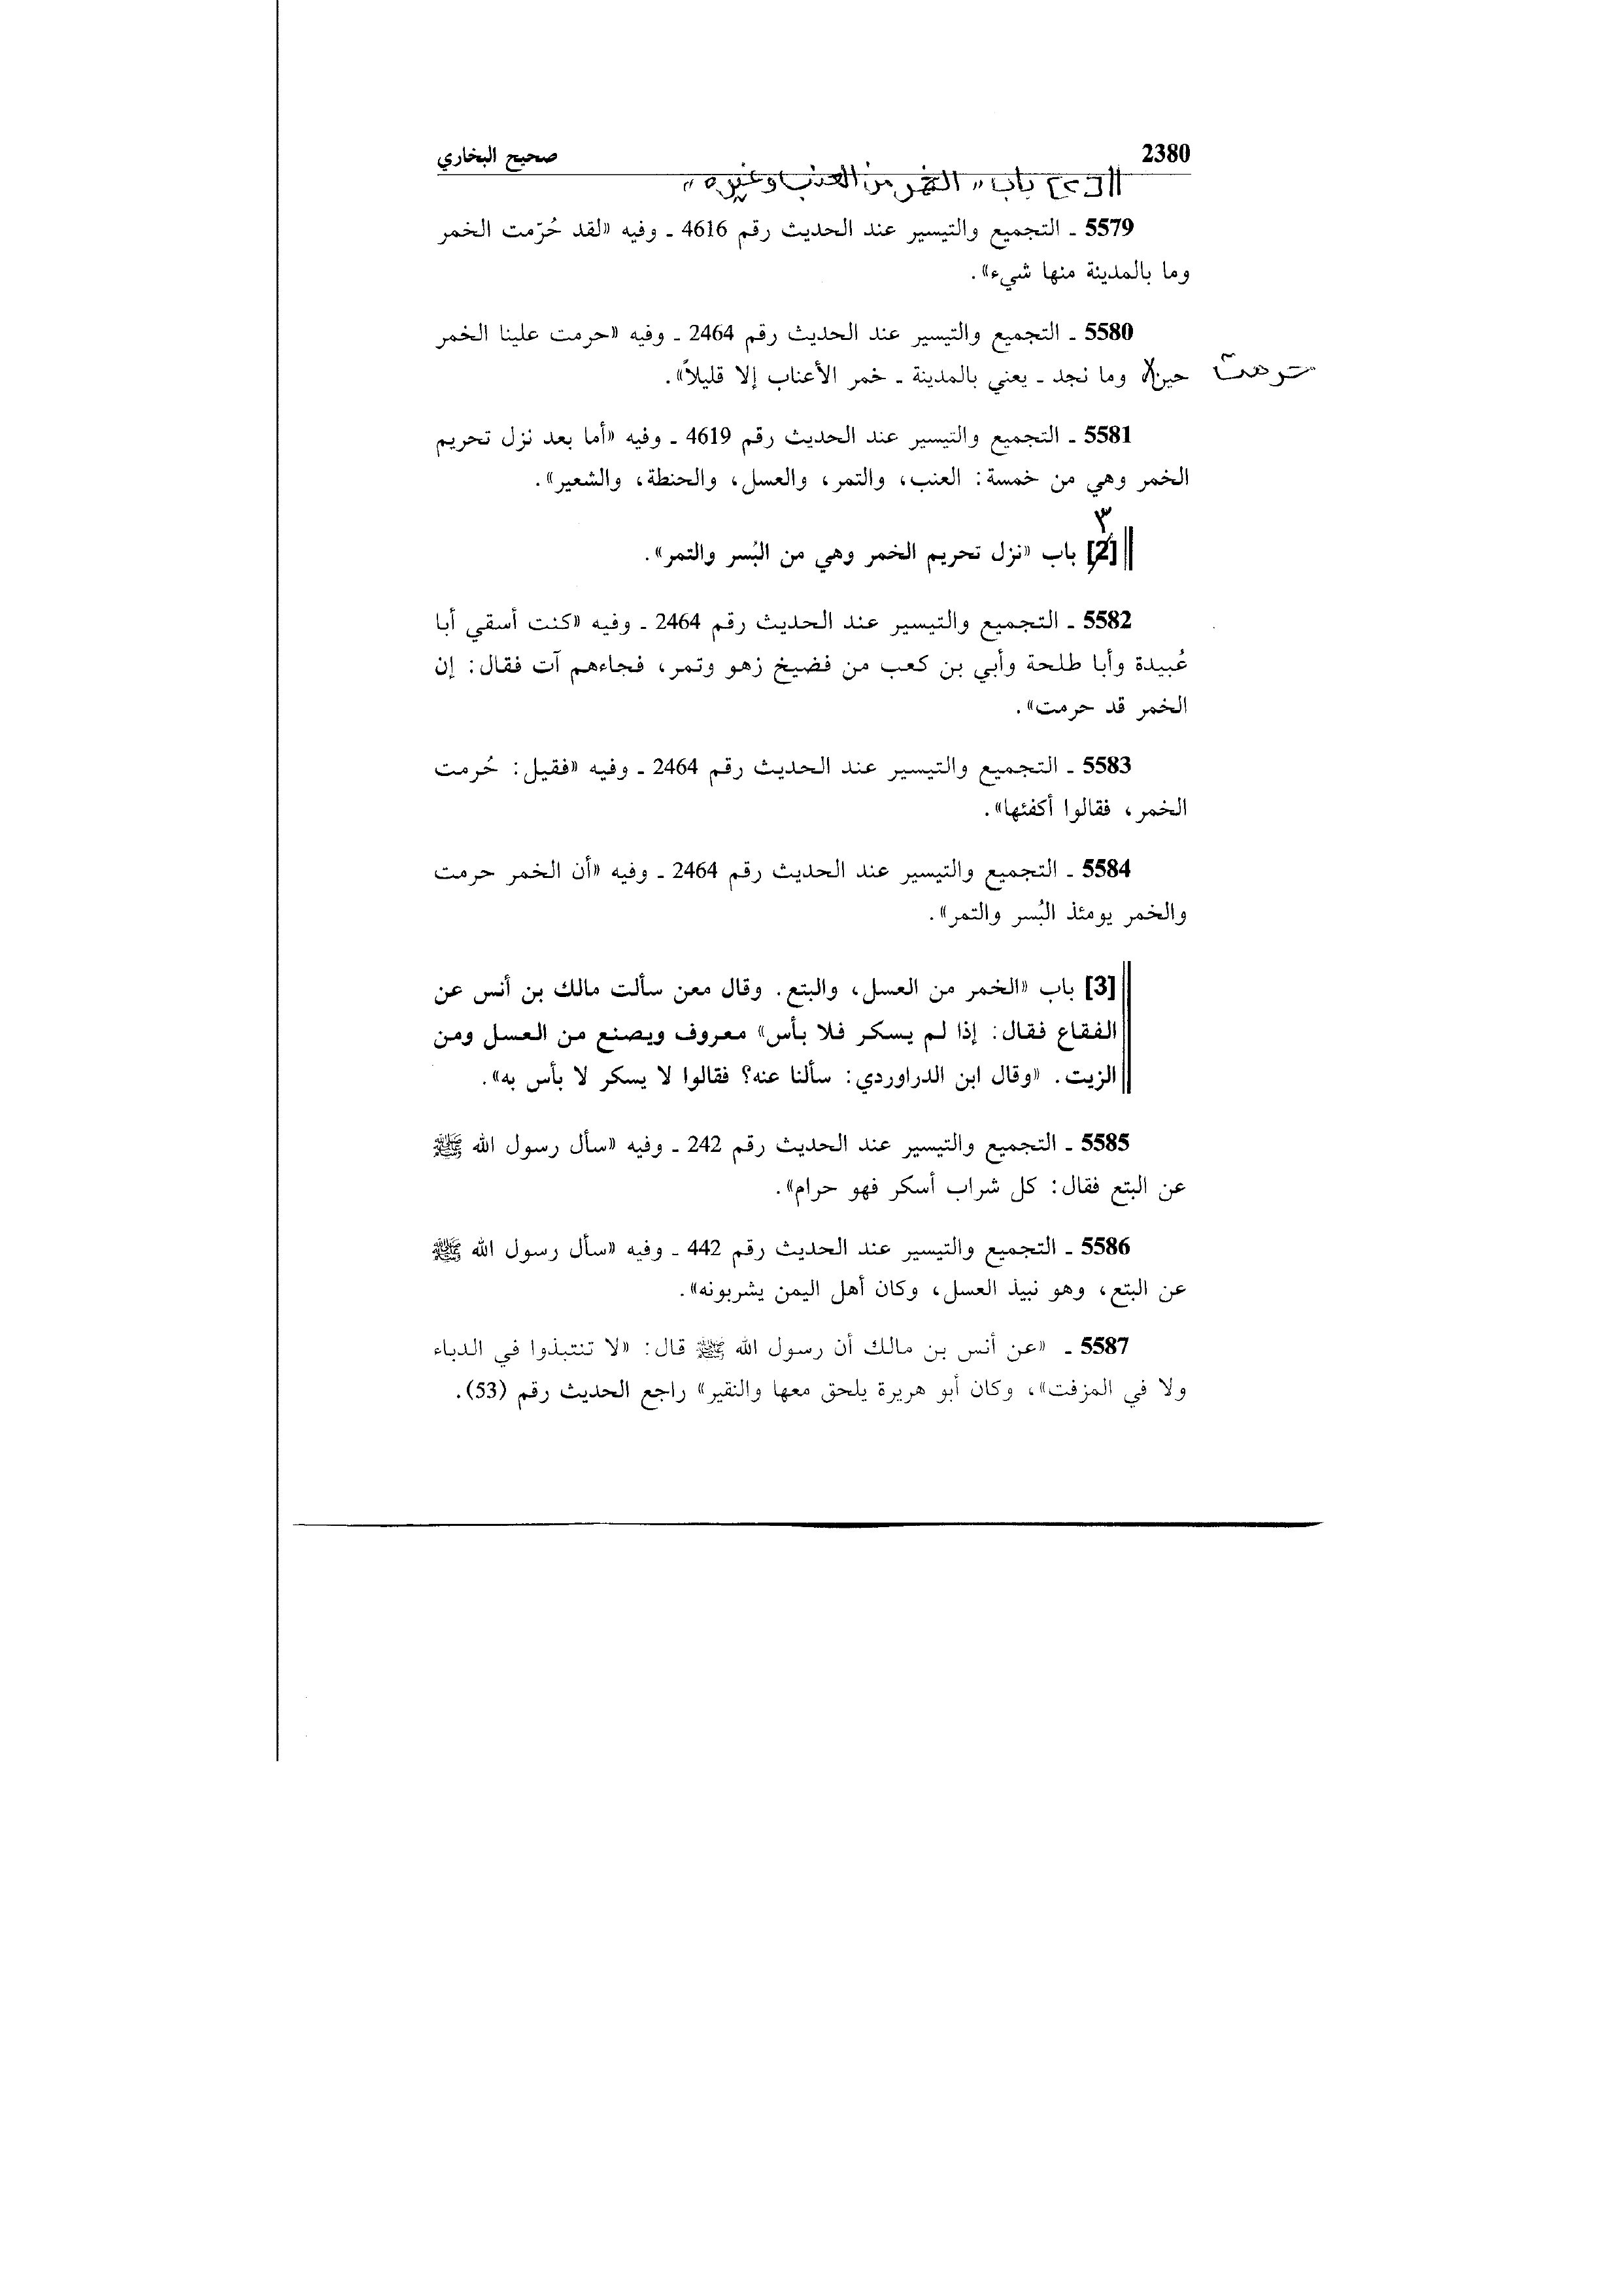 2380 صحيح البخاري
[٢] باب «الخمر من العنب وغيره»
5579 ـ التجميع والتيسير عند الحديث رقم 4616 ـ وفيه «لقد حُرّمت الخمر
وما بالمدينة منها شيء».
5580 ـ التجميع والتيسير عند الحديث رقم 2464 ـ وفيه «حرمت علينا الخمر
حرمت
حين وما نجد ـ يعني بالمدينة ـ خمر الأعناب إلا قليلاً».
5581 ـ التجميع والتيسير عند الحديث رقم 4619 ـ وفيه «أما بعد نزل تحريم
الخمر وهي من خمسة: العنب، والتمر، والعسل، والحنطة، والشعير».
٣
[2] باب «نزل تحريم الخمر وهي من البُسر والتمر».
5582 ـ التجميع والتيسير عند الحديث رقم 2464 ـ وفيه «كنت أسقي أبا
عُبيدة وأبا طلحة وأبي بن كعب من فضيخ زهو وتمر، فجاءهم آت فقال: إن
الخمر قد حرمت».
5583 ـ التجميع والتيسير عند الحديث رقم 2464 ـ وفيه «فقيل: حُرمت
الخمر، فقالوا أكفئها».
5584 ـ التجميع والتيسير عند الحديث رقم 2464 ـ وفيه «أن الخمر حرمت
والخمر يومئذ البُسر والتمر».
[3] باب «الخمر من العسل، والبتع. وقال معن سألت مالك بن أنس عن
الفقاع فقال: إذا لم يسكر فلا بأس» معروف ويصنع من العسل ومن
الزيت. «وقال ابن الدراوردي: سألنا عنه؟ فقالوا لا يسكر لا بأس به».
5585 ـ التجميع والتيسير عند الحديث رقم 242 ـ وفيه «سأل رسول الله ﷺ
عن البتع فقال: كل شراب أسكر فهو حرام».
5586 ـ التجميع والتيسير عند الحديث رقم 442 ـ وفيه «سأل رسول الله ﷺ
عن البتع، وهو نبيذ العسل، وكان أهل اليمن يشربونه».
5587 ـ «عن أنس بن مالك أن رسول الله ﷺ قال: «لا تنتبذوا في الدباء
ولا في المزفت»، وكان أبو هريرة يلحق معها والنقير» راجع الحديث رقم (53).